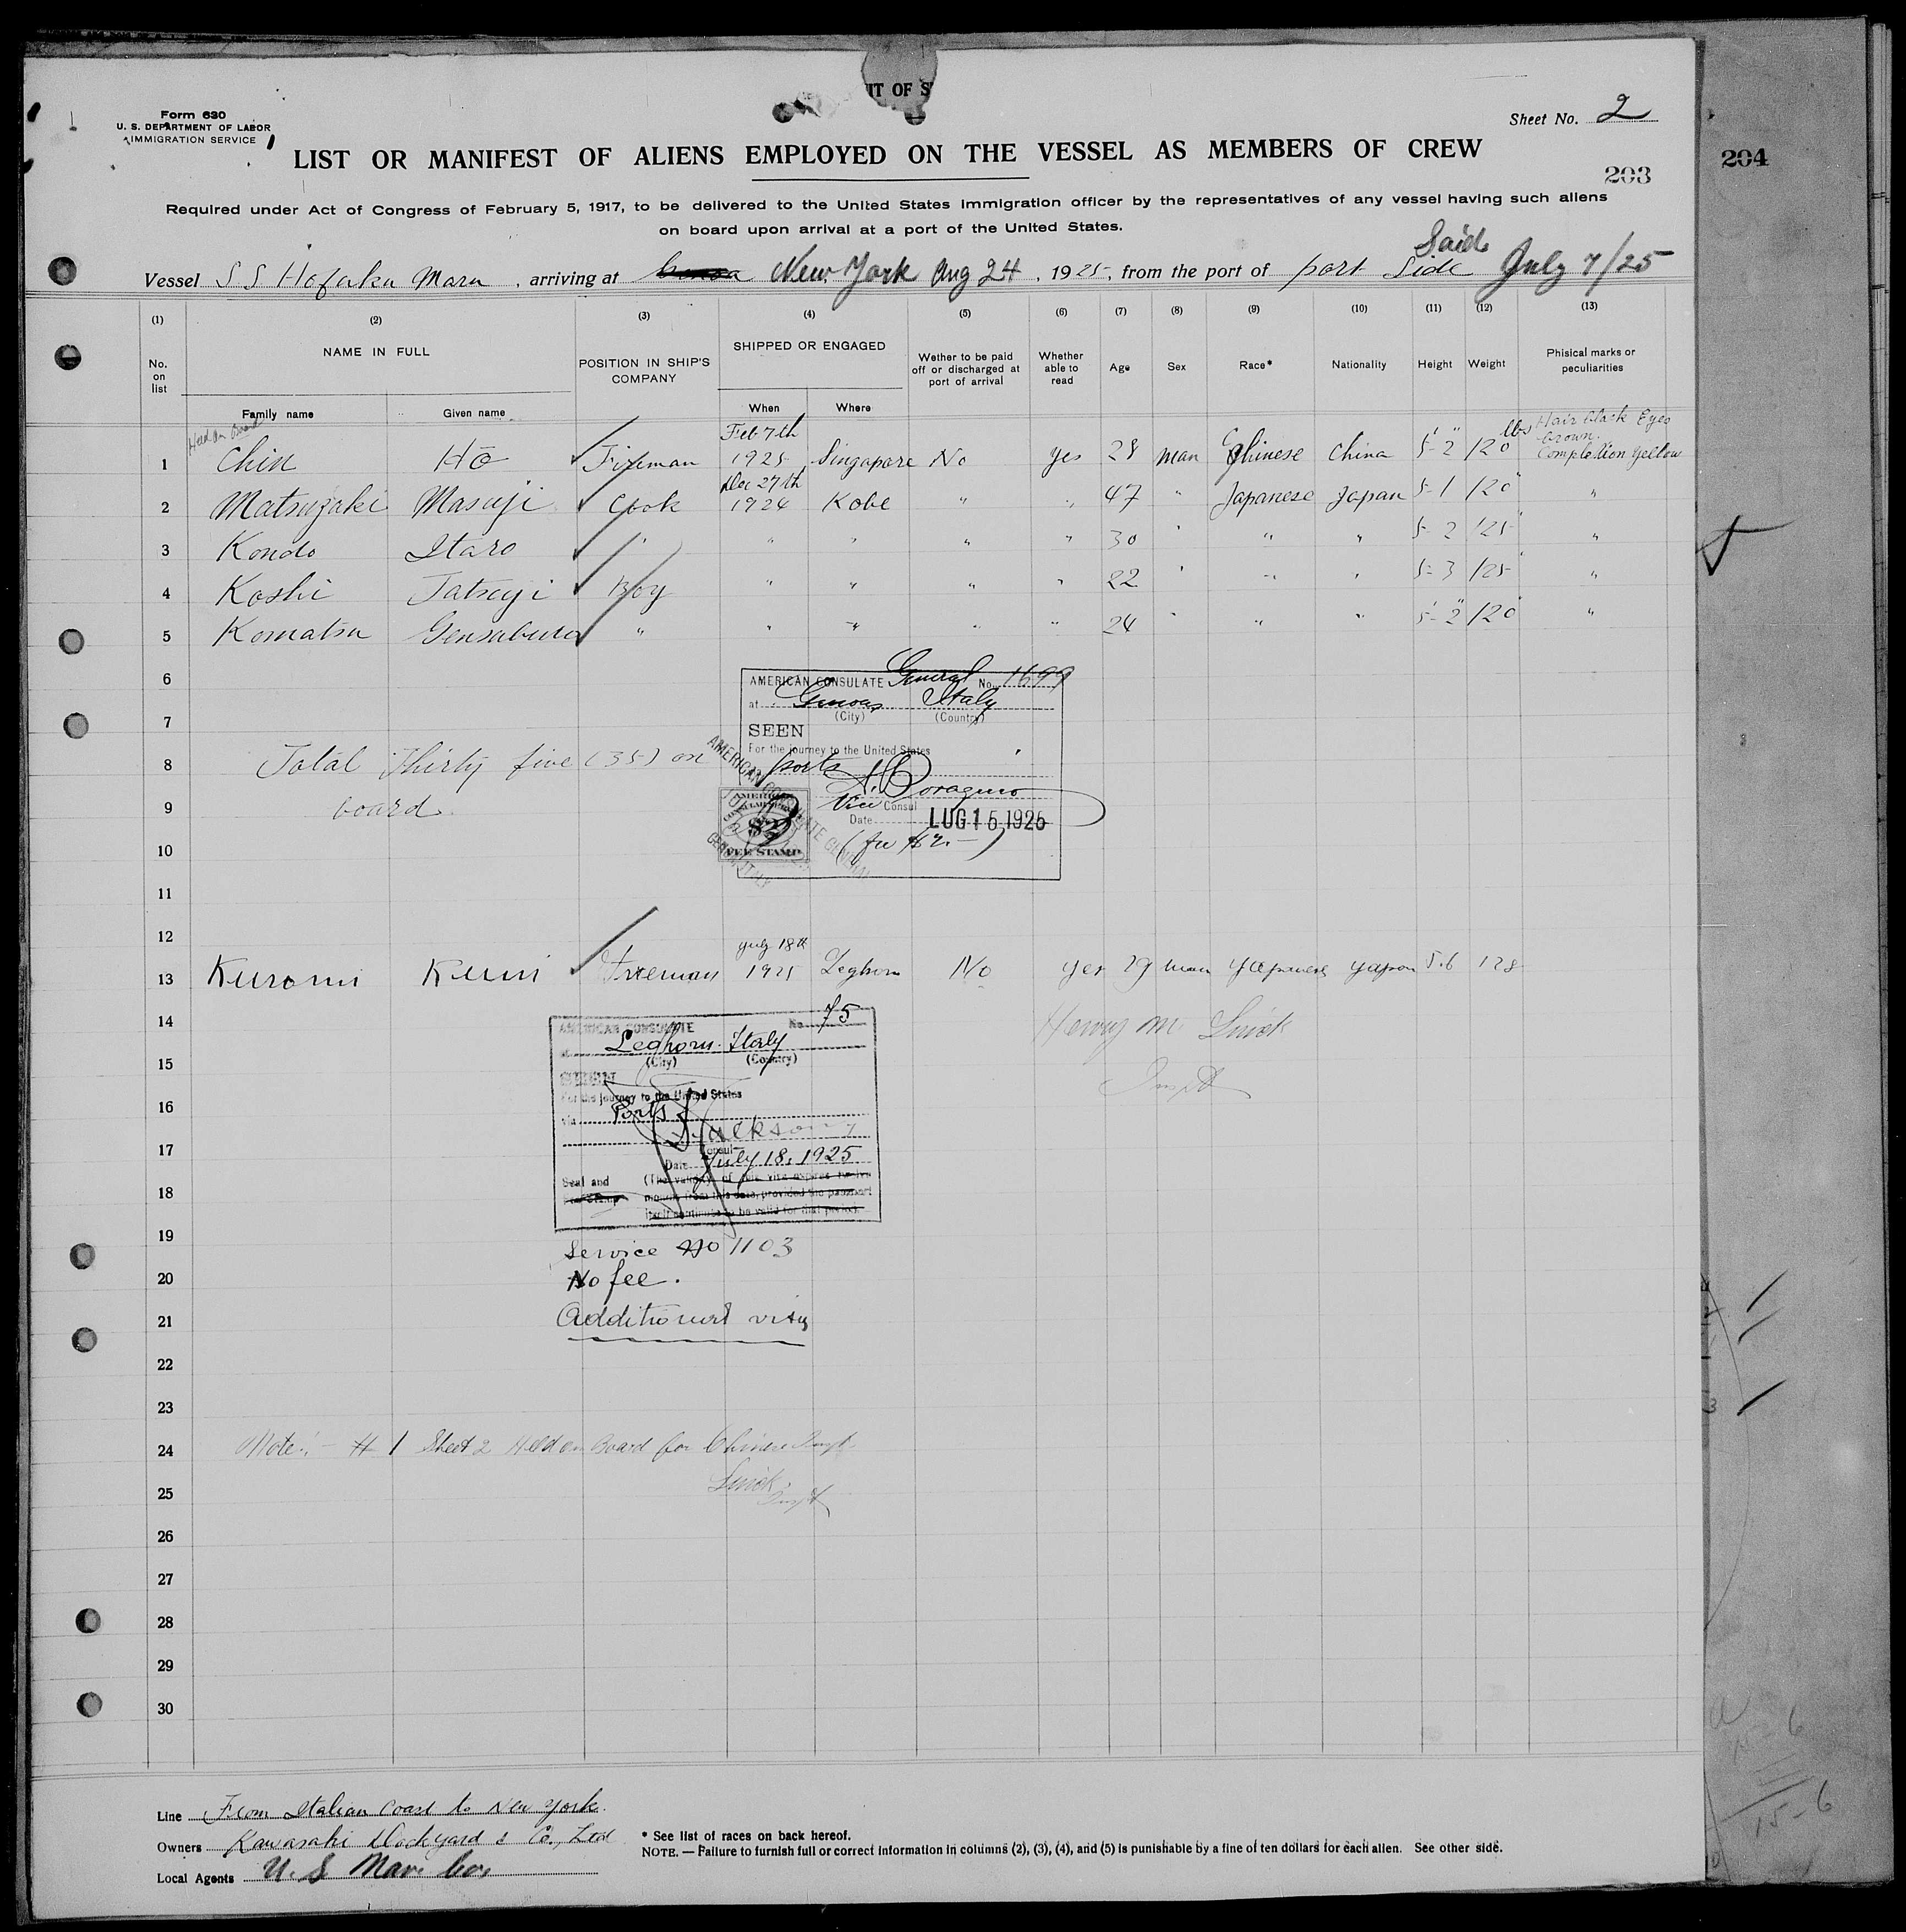 IT OF S
Form 630
U. S. DEPARTMENT OF LABOR
IMMIGRATION SERVICE
Sheet No. 2
LIST OR MANIFEST OF ALIENS EMPLOYED ON THE VESSEL AS MEMBERS OF CREW
203
204
Required under Act of Congress of February 5, 1917, to be delivered to the United States immigration officer by the representatives of any vessel having such aliens
on board upon arrival at a port of the United States.
Said
Vessel S S Hofuku Maru, arriving at New York Aug 24, 1925, from the port of port Side July 7/25
(1) (2) (3) (4) (5) (6) (7) (8) (9) (10) (11) (12) (13)
No. on list
NAME IN FULL
Family name Given name
POSITION IN SHIP'S COMPANY
SHIPPED OR ENGAGED
When Where
Wether to be paid off or discharged at port of arrival
Whether able to read
Age Sex Race* Nationality Height Weight
Phisical marks or peculiarities
Held on Board
1 Chin Ho Fireman Feb 7th 1925 Singapore No yes 28 man Chinese China 5'-2" 120 lbs Hair black Eyes brown. Complextion yellow
2 Matsuzaki Masuji Cook Dec 27th 1924 Kobe " " 47 " Japanese Japan 5-1 120 "
3 Kondo Itaro " " " " " 30 " " " 5-2 125 "
4 Koshi Tatsuji Boy " " " " 22 " " " 5-3 125 "
5 Komatsu Gensaburo " " " " " 24 " " " 5-2 120 "
6
7
8 Total Thirty five (35) on
9 board.
10
11
12
AMERICAN CONSULATE General No. 1699
at Genoa Italy
(City) (Country)
SEEN
For the journey to the United States
ports
Vice Consul
Date LUG 15 1925
(fee $2.-)
AMERICAN CONSULATE GENERAL
GENOA ITALY
AMERICAN
$2
FEE STAMP
13 Kuromi Kuni Fireman July 18th 1925 Leghorn No yes 29 man Yapanese Yapon 5.6 128
14
15
16
17
18
19
20
21
22
23
Henry M Linick
Inspt
AMERICAN CONSULATE No. 75
Leghorn. Italy
(City) (Country)
SEEN
For the journey to the United States
via Ports
Consul
Date July 18, 1925
Seal and
(The validity of this visa expires twelve
months from this date, provided the passport
itself continues to be valid for that period.
Service No 1103
No fee.
Additional visa
24 Note:- #1 Sheet 2 Held on Board for Chinese Inspt.
25 Linick.
Inspt
26
27
28
29
30
Line From Italian Coast to New York.
Owners Kawasaki Dockyard & Co., Ltd
Local Agents U. S Mari Cor
* See list of races on back hereof.
NOTE. — Failure to furnish full or correct information in columns (2), (3), (4), and (5) is punishable by a fine of ten dollars for each alien. See other side.
15-6